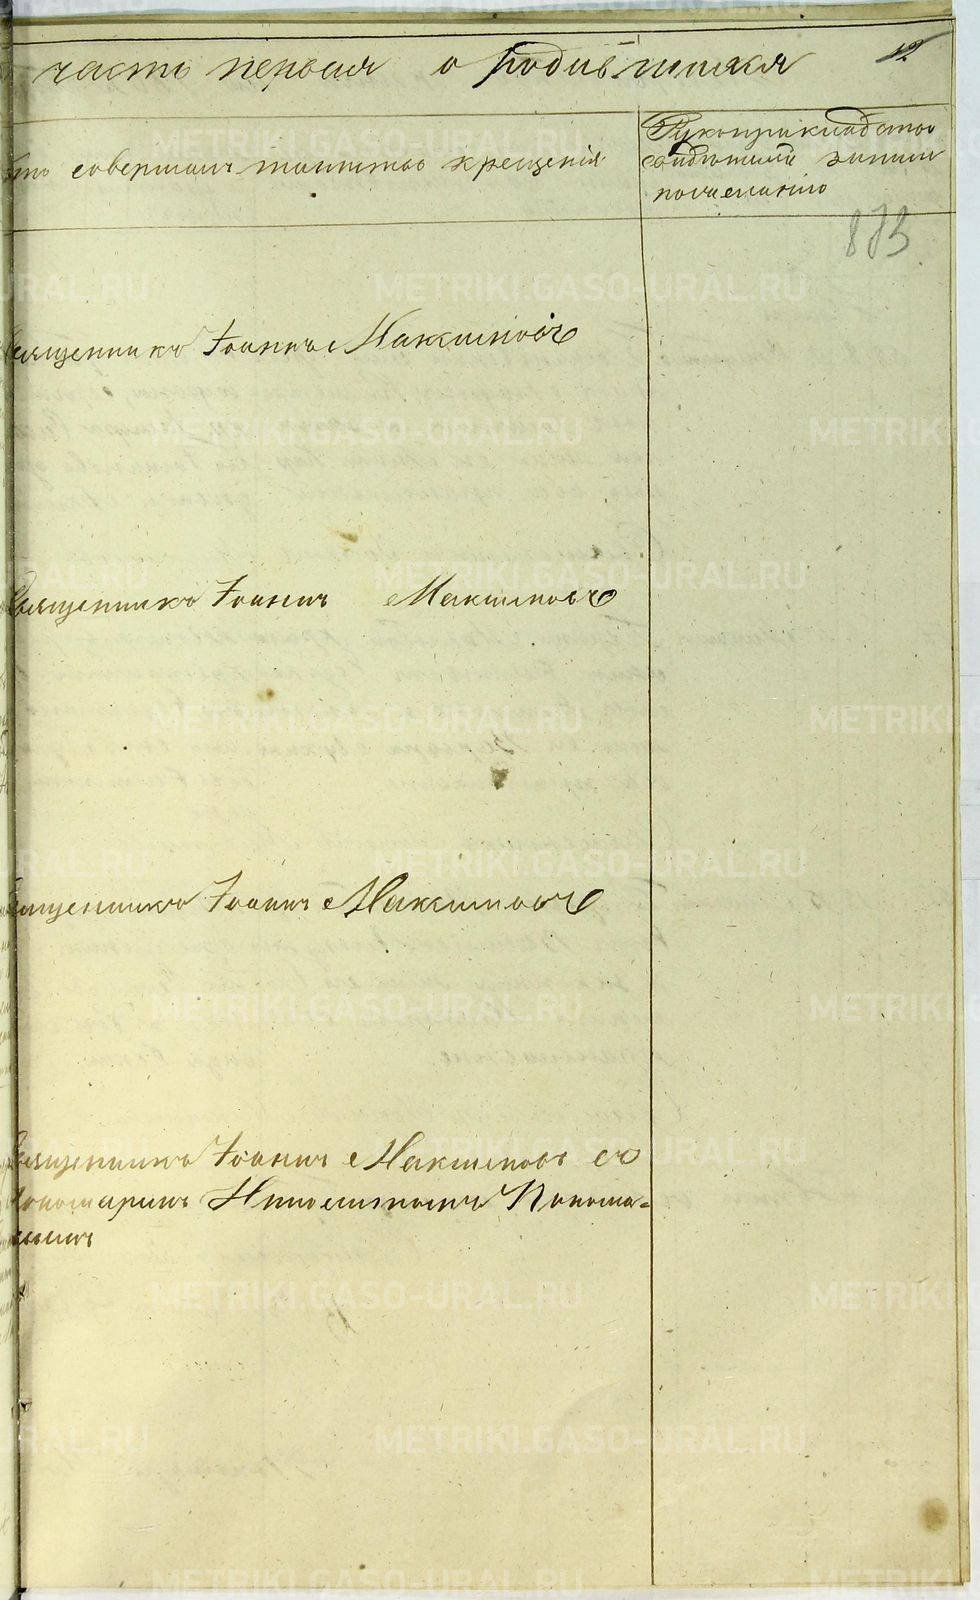 часть первая о родившихся 12.
Кто совершалъ таинство крещенiя
Рукоприкладство
свидѣтелей записи
по желанiю
873
Священникъ Iоаннъ Максимовъ
Священникъ Iоаннъ Максимовъ
Священникъ Iоаннъ Максимовъ
Священникъ Iоаннъ Максимовъ съ
Пономаремъ Пономар=
METRIKI.GASO-URAL.RU